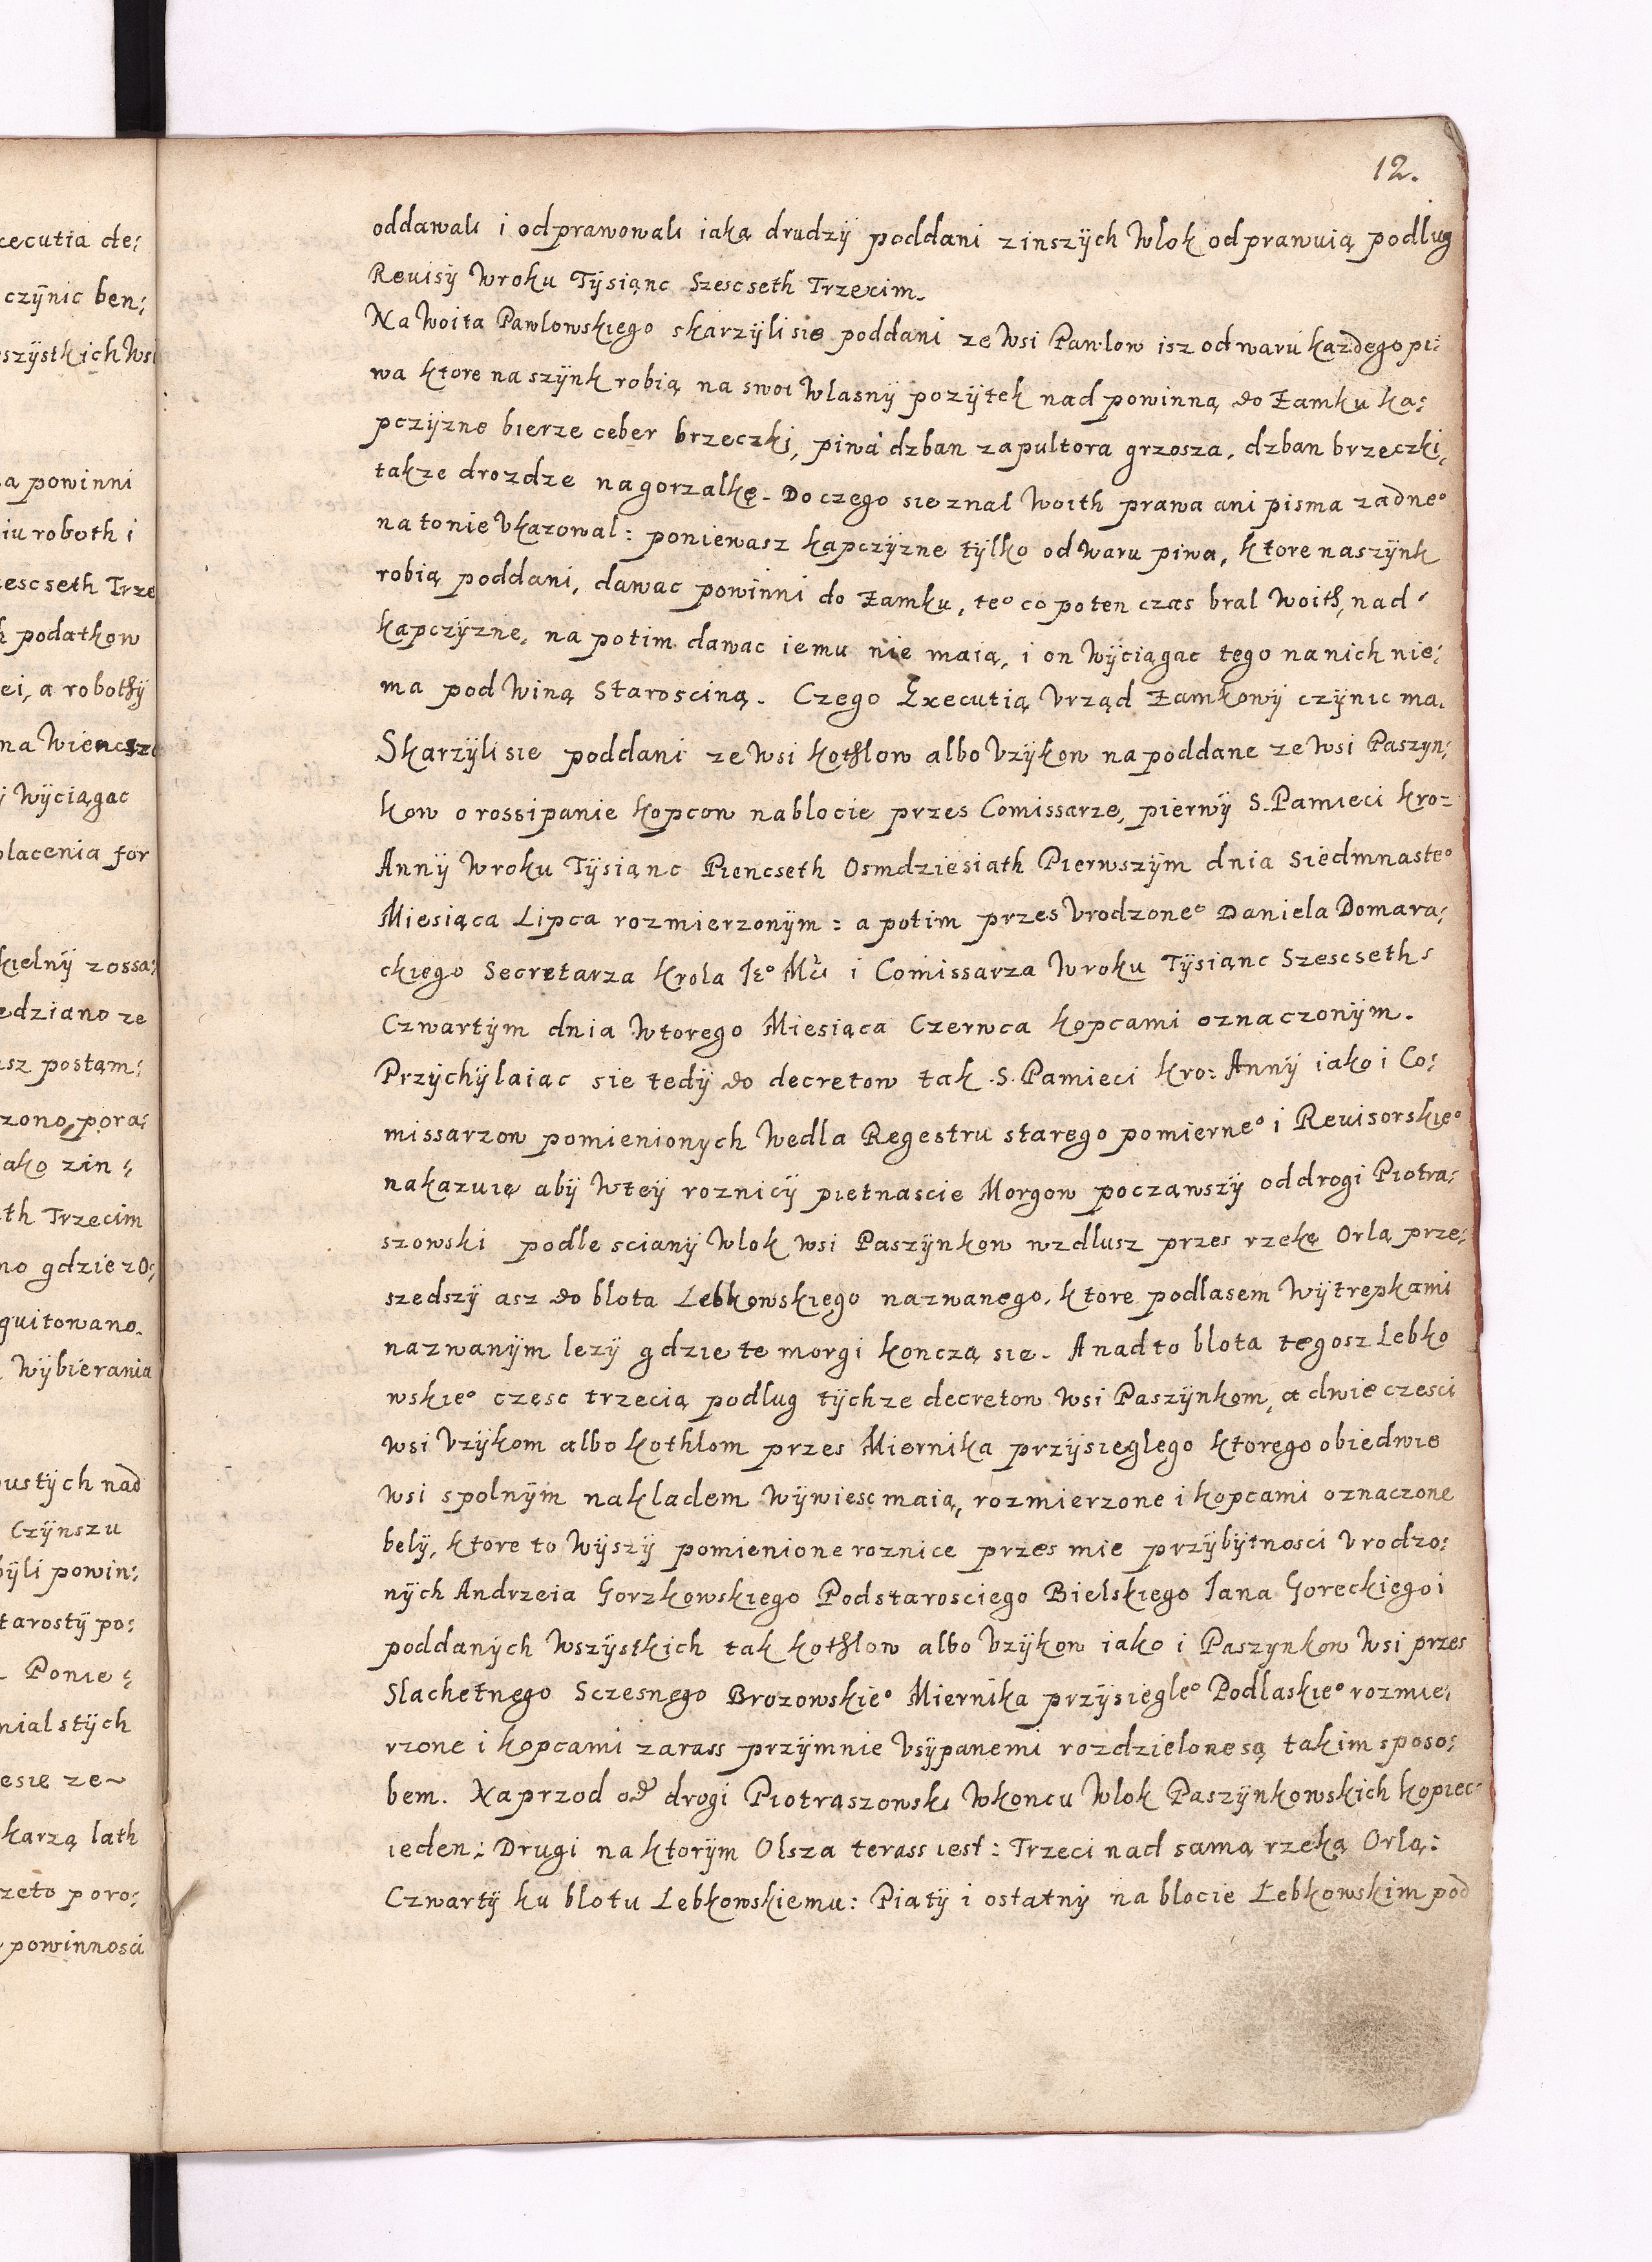 12.
oddawali i odprawowali iaką drudzÿ poddani z inszÿch Wlok odprawuią podlug
Reuisÿ Wroku Tÿsiąnc Szescseth Trzecim.
Na Woita Pawlowskiego skarzÿli sie poddani ze Wsi Pawlow isz od waru kazdego pi:
wa ktore na szÿnk robią na swoi Wlasnÿ pozÿtek nad powinną do Zamku ka:
pczÿzne bierze ceber brzeczki, piwa dzban za pultora grzosza, dzban brzeczki,
takze drozdze na gorzalkę. Do czego sie znal Woith prawa ani pisma zadne°
na to nie Vkazowal: poniewasz kapczÿzne tÿlko od Waru piwa, ktore na szÿnk
robią poddani, dawac powinni do Zamku, te° co po ten czas bral Woith, nad
kapczÿzne, na potim dawac iemu nie maią, i on Wÿciągac tego na nich nie:
ma pod Winą Starosciną. Czego Executią Vrząd Zamkowÿ czÿnic ma.
Skarzÿli sie poddani ze Wsi kothlow albo Vzÿkow na poddane ze Wsi Paszyn:
kow o rossipanie kopcow na blocie przes Comissarze, pierwÿ S. Pamieci kro:
Annÿ Wroku Tÿsianc Piencseth Osmdziesiath Pierwszÿm dnia Siedmnaste°
Miesiąca Lipca rozmierzonÿm: a potim przes Vrodzone° Daniela Domara:
ckiego Secretarza krola Je° Mči i Comissarza Wroku Tÿsianc Szescseth
Czwartÿm dnia Wtorego Miesiąca Czerwca kopcami oznaczonÿm.
Przÿchÿlaiac sie tedÿ do decretow tak .S. Pamieci kro: Annÿ iako i Co:
missarzow pomienionych Wedla Regestru starego pomierne° i Reuisorskie°
nakazuię abÿ Wteÿ roznicÿ pietnascie Morgow poczawszÿ od drogi Piotra:
szowski podle scianÿ Wlok wsi Paszÿnkow wzdlusz przes rzekę Orlą prze:
szedszÿ asz do blota Lebkowskiego nazwanego, ktore podlasem Wÿtrepkami
nazwanÿm lezÿ gdzie te morgi konczą sie. A nad to blota tegosz Lebko
wskie° częsc trzecią podlug tÿchze decretow Wsi Paszÿnkom, a dwie czesci
wsi Vzÿkom albo kothlom przes Miernika przÿsieglego ktorego obiedwie
wsi spolnÿm nakladem Wÿwiesc maią, rozmierzone i kopcami oznaczone
belÿ, ktore to Wÿszÿ pomienione roznice przes mie przÿbÿtnosci Vrodzo:
nÿch Andrzeia Gorzkowskiego Podstarosciego Bielskiego Jana Goreckiego i
poddanÿch Wszÿstkich tak kothlow albo Vzÿkow iako i Paszynkow Wsi przes
Slachetnego Sczesnego Brozowskie° Miernika przÿsiegle° Podlaskie° rozmie:
rzone i kopcami zarass przÿmnie Vsÿpanemi rozdzielone są takim sposo:
bem. Naprzod od drogi Piotraszowski Wkoncu Wlok Paszÿnkowskich kopiec
ieden: Drugi na ktorÿm Olsza terass iest: Trzeci nad samą rzeką Orlą:
Czwartÿ ku blotu Lebkowskiemu: Piątÿ i ostatnÿ na blocie Lebkowskim pod